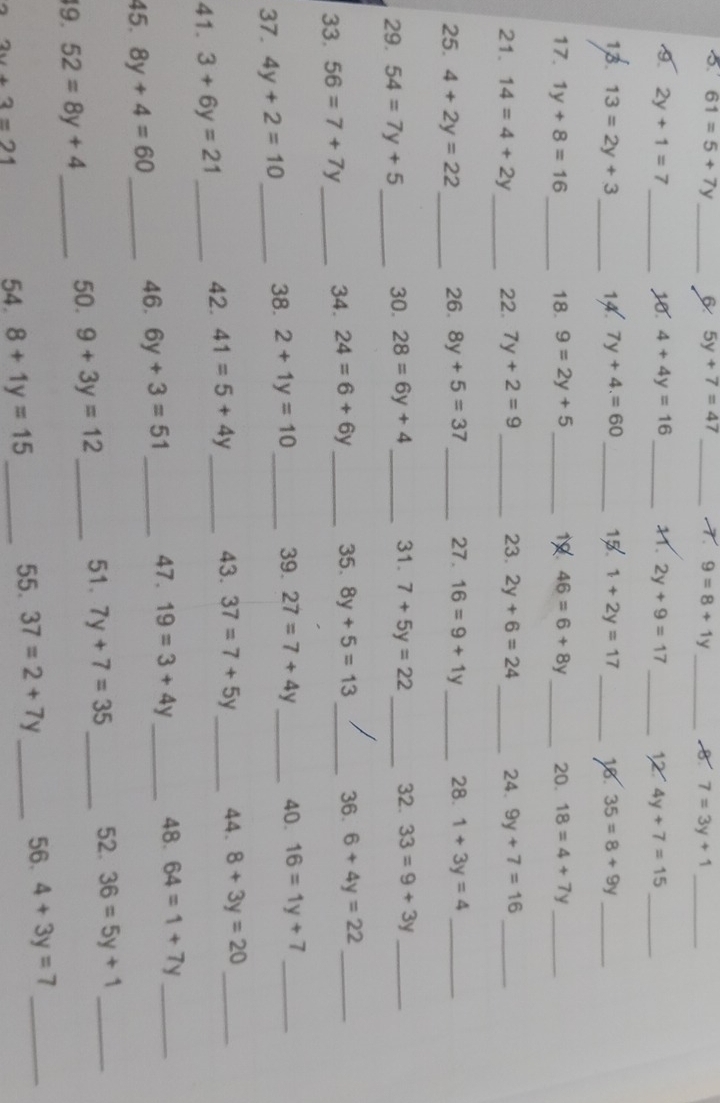 5. 61 = 5 + 7y ____ 6. 5y + 7 = 47 ____ 7. 9 = 8 + 1y ____ 8. 7 = 3y + 1 ____
9. 2y + 1 = 7 ____ 10. 4 + 4y = 16 ____ 11. 2y + 9 = 17 ____ 12. 4y + 7 = 15 ____
13. 13 = 2y + 3 ____ 14. 7y + 4 = 60 ____ 15. 1 + 2y = 17 ____ 16. 35 = 8 + 9y ____
17. 1y + 8 = 16 ____ 18. 9 = 2y + 5 ____ 19. 46 = 6 + 8y ____ 20. 18 = 4 + 7y ____
21. 14 = 4 + 2y ____ 22. 7y + 2 = 9 ____ 23. 2y + 6 = 24 ____ 24. 9y + 7 = 16 ____
25. 4 + 2y = 22 ____ 26. 8y + 5 = 37 ____ 27. 16 = 9 + 1y ____ 28. 1 + 3y = 4 ____
29. 54 = 7y + 5 ____ 30. 28 = 6y + 4 ____ 31. 7 + 5y = 22 ____ 32. 33 = 9 + 3y ____
33. 56 = 7 + 7y ____ 34. 24 = 6 + 6y ____ 35. 8y + 5 = 13 ____ 36. 6 + 4y = 22 ____
37. 4y + 2 = 10 ____ 38. 2 + 1y = 10 ____ 39. 27 = 7 + 4y ____ 40. 16 = 1y + 7 ____
41. 3 + 6y = 21 ____ 42. 41 = 5 + 4y ____ 43. 37 = 7 + 5y ____ 44. 8 + 3y = 20 ____
45. 8y + 4 = 60 ____ 46. 6y + 3 = 51 ____ 47. 19 = 3 + 4y ____ 48. 64 = 1 + 7y ____
49. 52 = 8y + 4 ____ 50. 9 + 3y = 12 ____ 51. 7y + 7 = 35 ____ 52. 36 = 5y + 1 ____
3y + 3 = 21 54. 8 + 1y = 15 ____ 55. 37 = 2 + 7y ____ 56. 4 + 3y = 7 ____